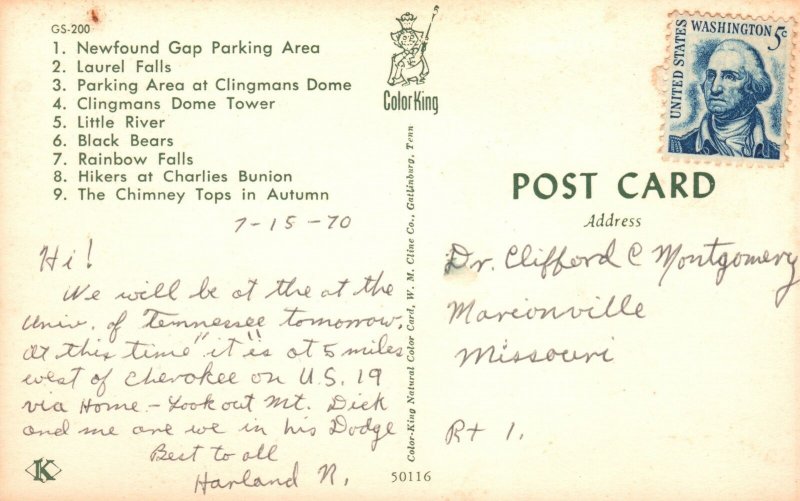 GS-200
1. Newfound Gap Parking Area
2. Laurel Falls
3. Parking Area at Clingmans Dome
4. Clingmans Dome Tower
5. Little River
6. Black Bears
7. Rainbow Falls
8. Hikers at Charlies Bunion
9. The Chimney Tops in Autumn
7-15-70
Hi!
We will be at the at the
Univ. of Tennessee tomorrow.
At this time "it" is at 5 miles
west of Cherokee on U.S. 19
via Home - Lookout Mt. Dick
and me are we in his Dodge
Best to all
Harland N.
K
ColorKing
Color-King Natural Color Card, W. M. Cline Co., Gatlinburg, Tenn
50116
UNITED STATES
WASHINGTON 5c
POST CARD
Address
Dr. Clifford C Montgomery
Marionville
Missouri
Rt 1.